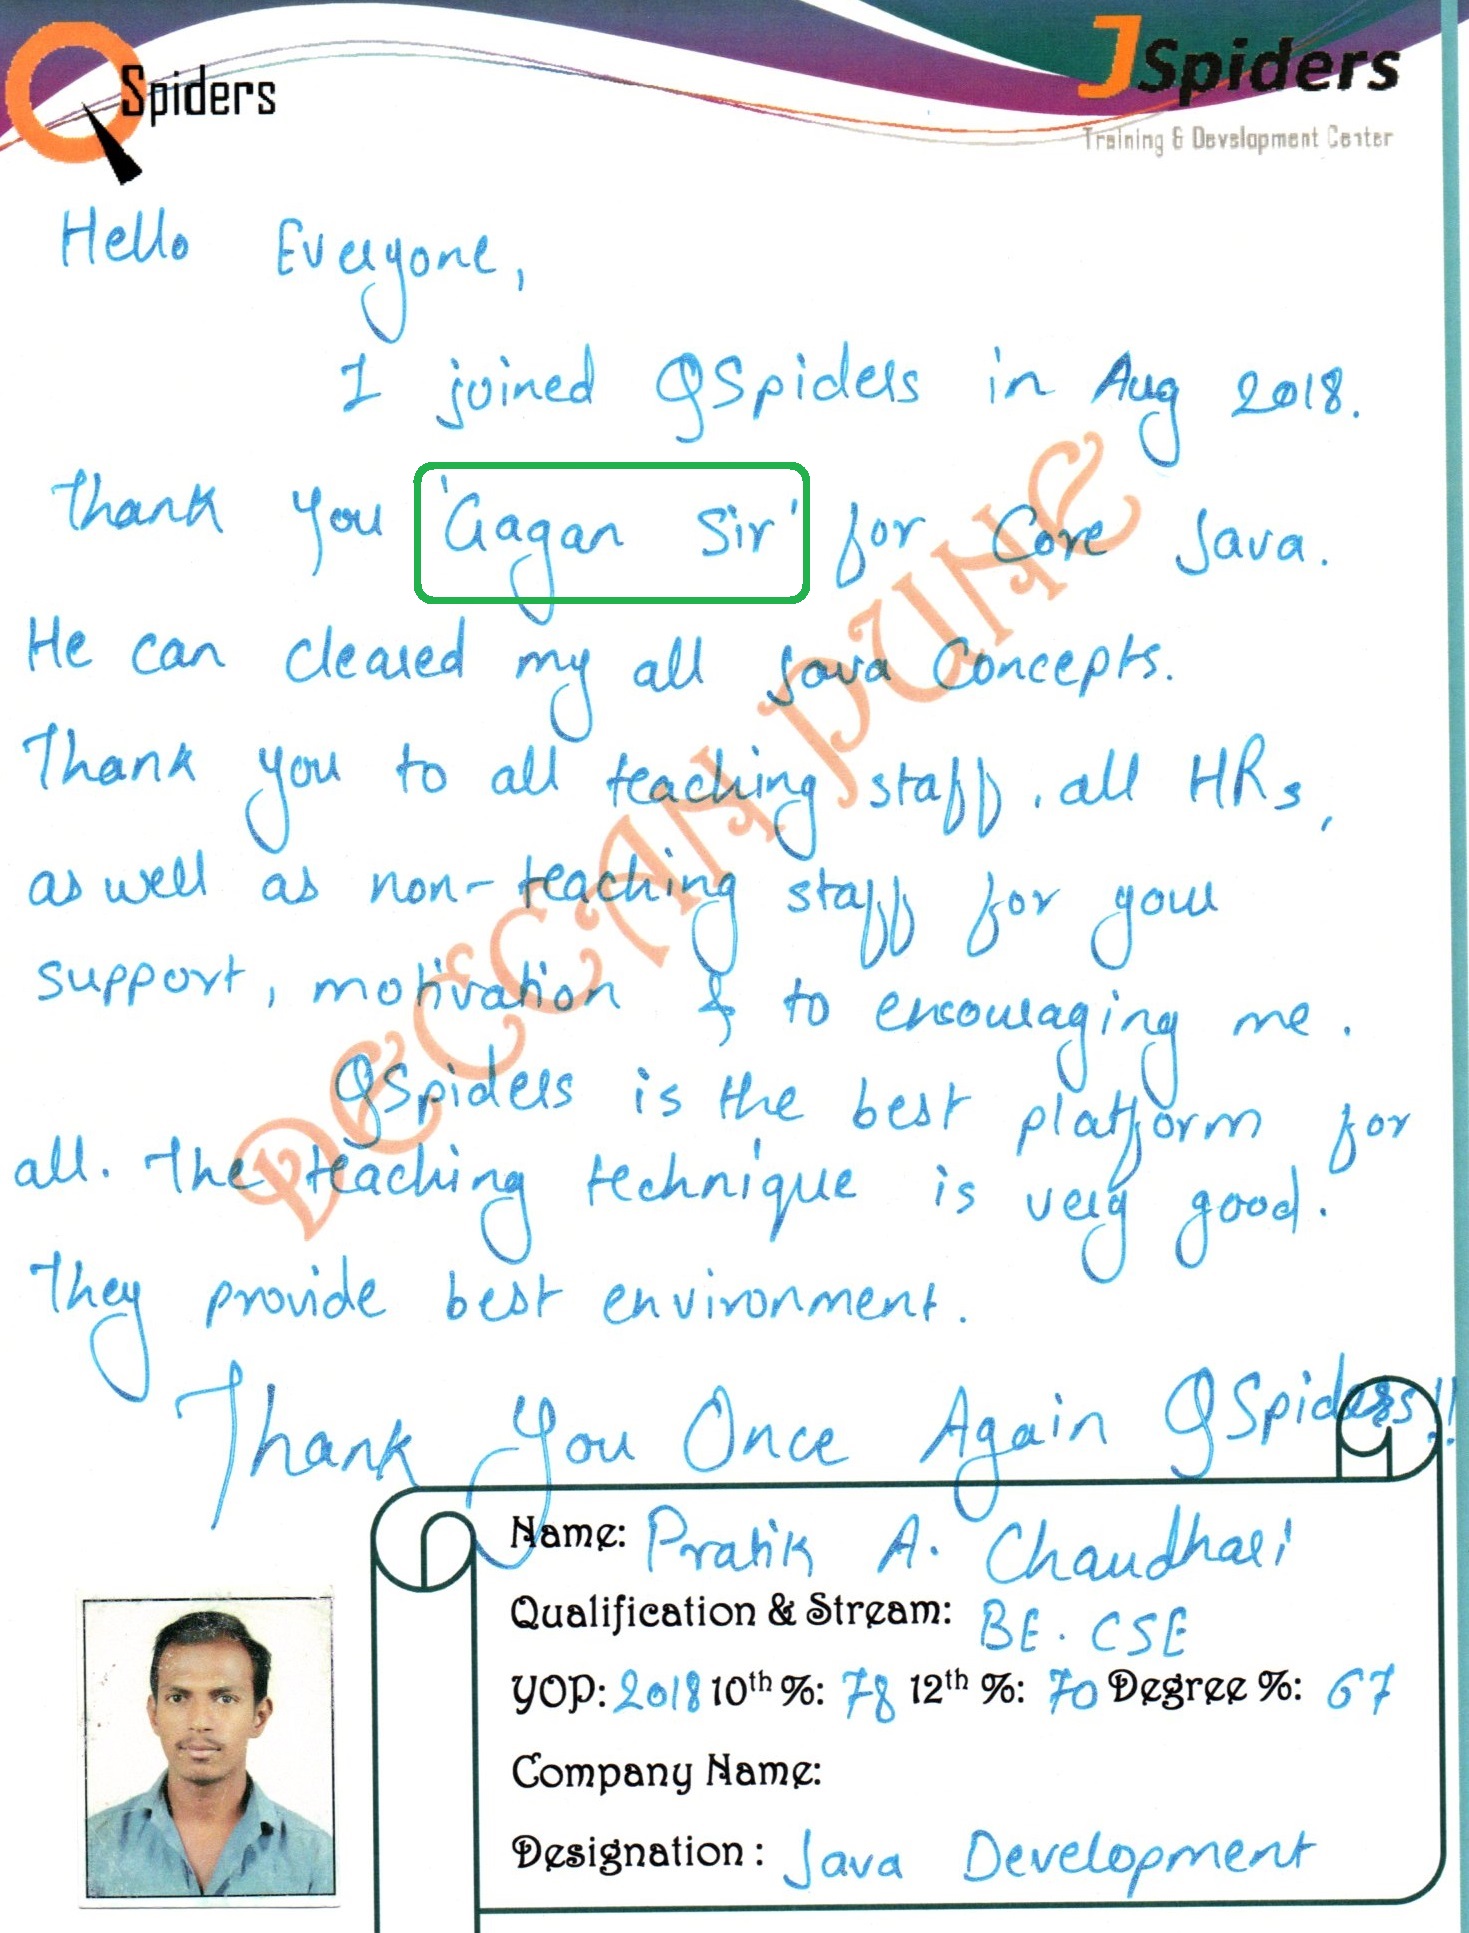 QSpiders
JSpiders
Training & Development Center
Hello Everyone,
I joined QSpiders in Aug 2018.
Thank you 'Gagan Sir' for Core Java.
He can cleared my all Java Concepts.
Thank you to all teaching staff, all HRs,
as well as non-teaching staff for your
support, motivation & to encouraging me.
QSpiders is the best platform for
all. The teaching technique is very good.
They provide best environment.
Thank You Once Again QSpiders!!
DECCAN PUNE
Name: Pratik A. Chaudhari
Qualification & Stream: BE. CSE
YOP: 2018 10th %: 78 12th %: 70 Degree %: 67
Company Name:
Designation : Java Development